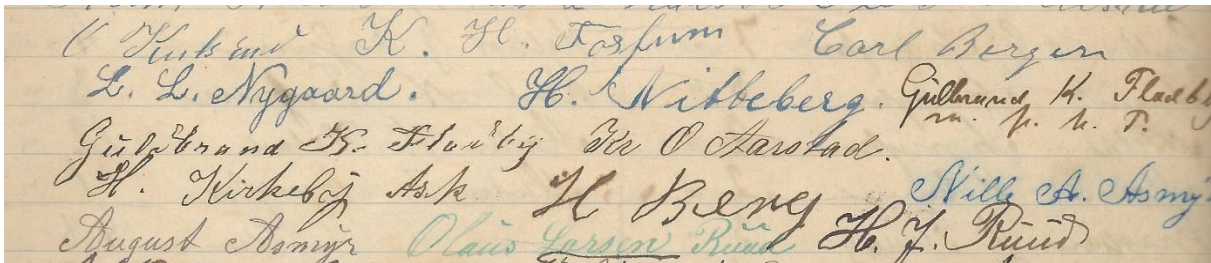 K. H. Fossum Carl Bergen
L. L. Nygaard. H. Nitteberg. Gulbrand K. Fladby
m. p. p. T.
Guldbrand K. Fladby Kr O Aarstad.
H. Kirkeby Ask H Berg Nille A. Asmyr
August Asmyr Olaus Larsen Ruud H. J. Ruud